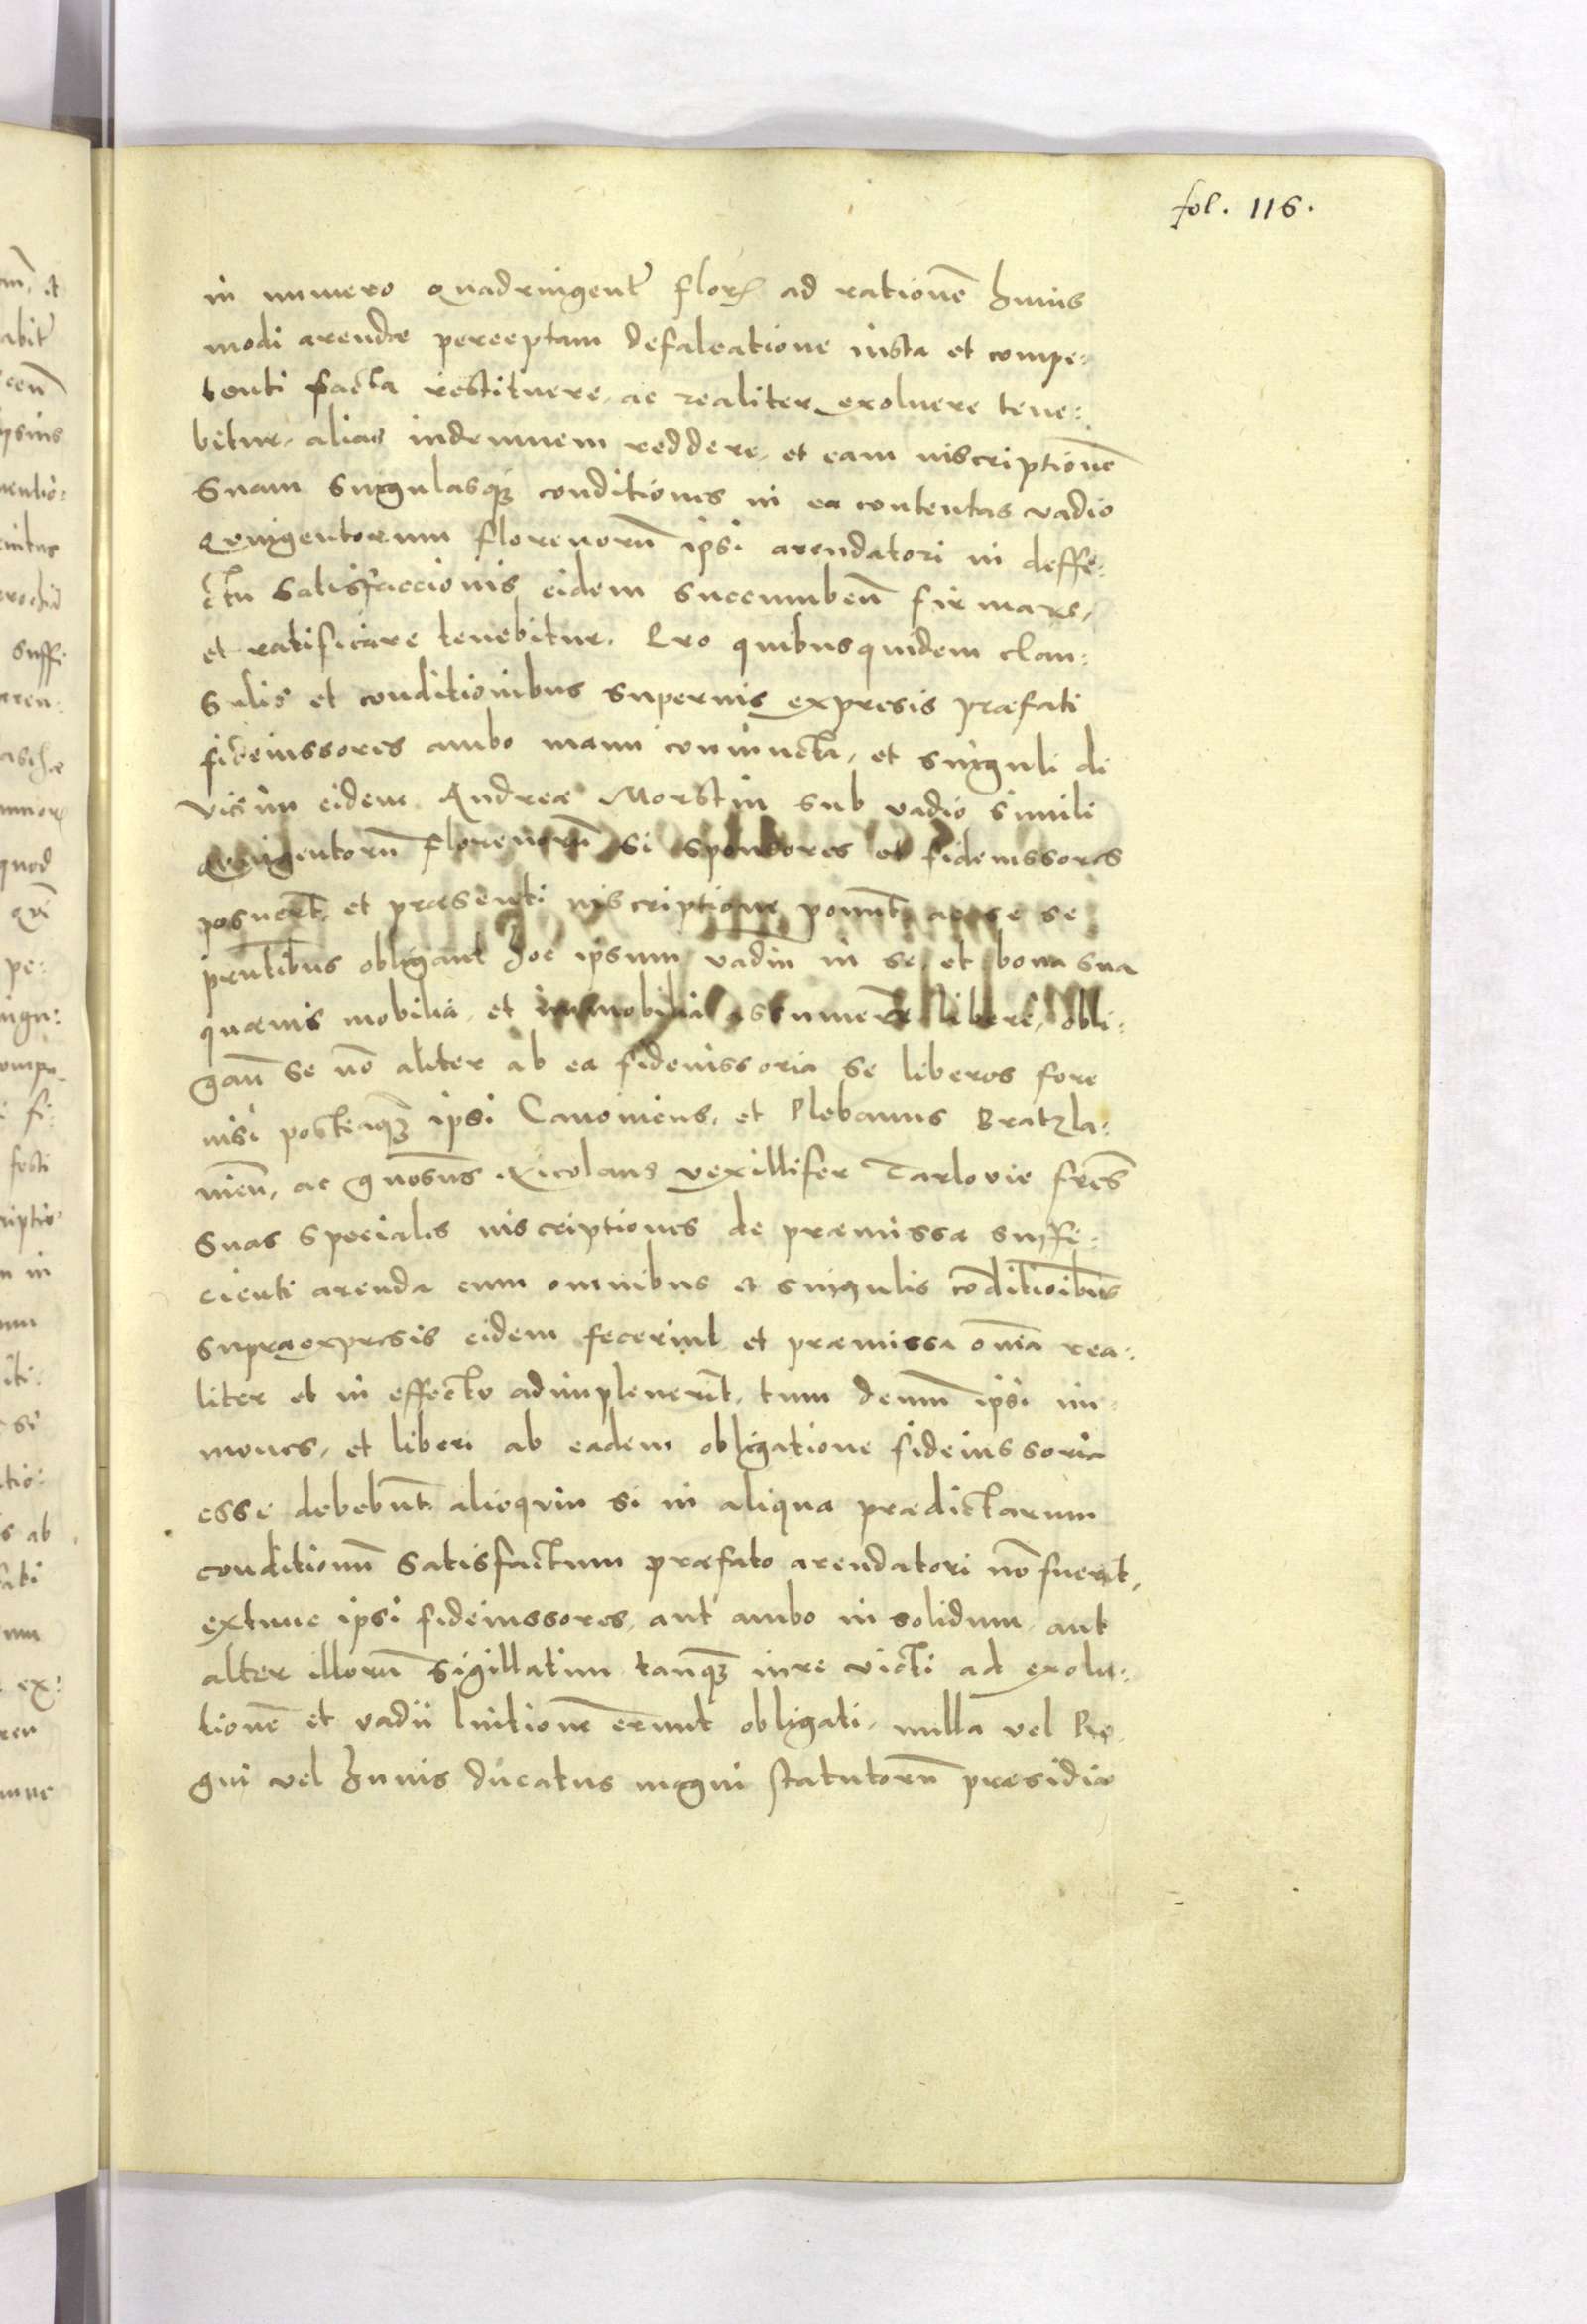 fol. 116.
in numero Quadringent flor ad rationē huius
modi arendæ perceptam defalcatione iusta et compe:
tenti facta restituere, ac realiter exoluere tene:
bitur, alias indemnem reddere, et eam inscriptionē
suam singulasq; conditiones in ea contentas vadio
Quingentorum florenorū ipsi arendatori in deffe:
ctu satisfaccionis eidem succumbeñ firmare,
et ratificare tenebitur. Pro quibusquidem clau:
sulis et conditionibus superius expresis præfati
fideiussores ambo manu coniuncta, et singuli di
visim eidem Andreæ Morstin sub vadio simili
Quingentorū florenorū si sponsores et fideiussores
posuert, et præsenti inscriptione ponunt ac se se
pñtibus obligant hoc ipsum vadiū in se, et bona sua
quævis mobilia, et immobilia assumere libere, obli:
gañ se nō aliter ab ea fideiussoria se liberos fore
nisi posteaq; ipsi Canonicus, et Plebanus Bratzla:
vieñ, ac gnosus Nicolaus vexillifer Tarlovie frēs
suas speciales inscriptiones de præmissa suffi:
cienti arenda cum omnibus et singulis cōditioibus
supraexpresis eidem fecerint et præmissa omīa rea:
liter et in effectu adimpleverīt, tum demū ipsi im
munes, et liberi ab eadem obligatione fideiussoria
esse debebūt. alioqvin si in aliqua prædictarum
conditionū satisfactum præfato arendatori nō fuerit,
extunc ipsi fideiussores, aut ambo in solidum, aut
alter illorū sigillatim tanq; iure victi ad exolu:
tionē et vadii luitionē erunt obligati, nulla vel Re
gni vel huius ducatus magni statutorū præsidia